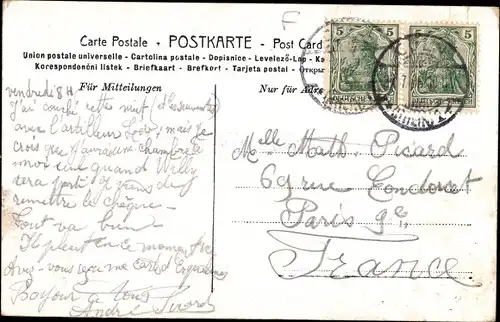 F
Carte Postale + POSTKARTE - Post Card
Union postale universelle - Cartolina postale - Dopisnice - Levelező-Lap - Ka
Korespondenční listek - Briefkaart - Brefkort - Tarjeta postal - Откры
Für Mitteilungen
Nur für Adre
5 5 5 5
vendredi 8 H
J'ai couché cette nuit
avec l'artilleur mais je
crois que j'aurai une chambre
moi quand Willy
sera parti Je viens de
remettre le chèque
Tout va bien
Il pleut en ce moment
Avez-vous reçu me cartes
Bonjour à tous
André Picard
Melle Math. Picard
69 rue Condorcet
Paris 9e
France